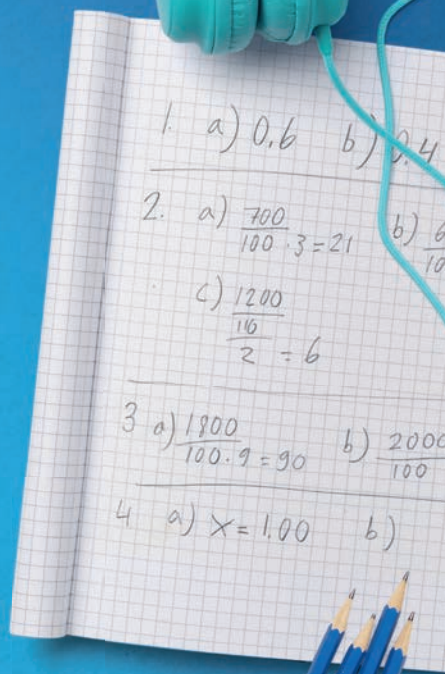 1. a) 0,6 b) 0,4
2. a) 700
100 · 3 = 21 b) 6
10
c) 1200
116
2 = 6
3 a) 1800
100 · 9 = 90 b) 2000
100
4 a) x = 1,00 b)